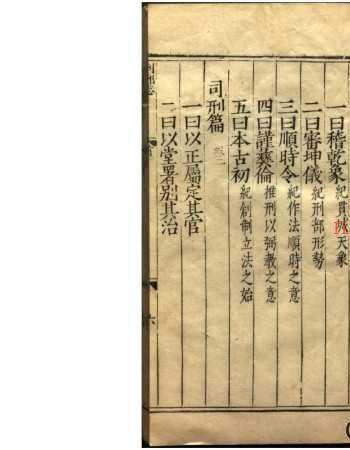 一曰稽乾象紀貫城天象
二曰審坤儀紀刑部形勢
三曰順時令紀作法順時之意
四曰謹彝倫推刑以弼教之意
五曰本古初紀創制立法之始
司刑篇卷二
一曰以正屬定其官
二曰以堂署別其治
六